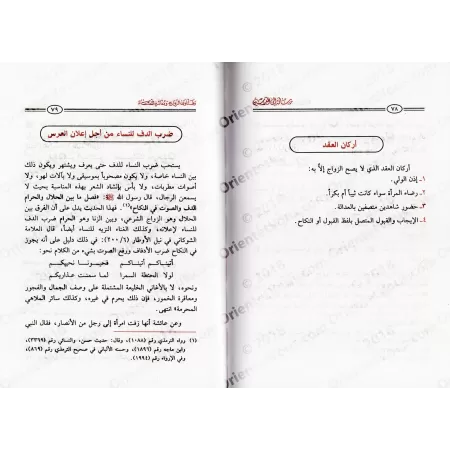 ٧٨
أركان العقد
أركان العقد الذي لا يصح الزواج إلاَّ به:
١ـ إذن الولي.
٢ـ رضاء المرأة سواء كانت ثيباً أم بكراً.
٣ـ حضور شاهدين متصفين بالعدالة.
٤ـ الإيجاب والقبول المتصل بلفظ القبول أو النكاح.
٧٩
ضرب الدف للنساء من أجل إعلان العرس
يستحب ضرب النساء للدف حتى يعرف ويشتهر ويكون ذلك
بين النساء خاصة، ولا يكون مصحوباً بموسيقى ولا بآلات لهو، ولا
أصوات مطربات، ولا بأس بإنشاد الشعر بهذه المناسبة بحيث لا
يسمعن الرجال، قال رسول الله ﷺ: «فصل ما بين الحلال والحرام
الدف والصوت في النكاح»(١). فهذا الحديث يدل على أن الفرق بين
الحلال وهو الزواج الشرعي، وبين الزنا وهو الحرام ضرب الدف
لإعلانه، وكذلك الغناء النزيه للنساء أيضاً، قال العلامة
الشوكاني في نيل الأوطار (٢٠٠/٦): في ذلك دليل على أنه يجوز
في النكاح ضرب الأدفاف ورفع الصوت بشيء من الكلام نحو:
أتيناكم أتيناكم فحيونا نحييكم
لولا الحنطة السمرا لما سمنت عذاريكم
ونحوه، لا بالأغاني الخليعة المشتملة على وصف الجمال والفجور
ومعاقرة الخمور، فإن ذلك يحرم في غيره، وكذلك سائر الملاهي
المحرمة» انتهى.
وعن عائشة أنها زفت امرأة إلى رجل من الأنصار، فقال النبي
(١) رواه الترمذي رقم (١٠٨٨)، وقال: حديث حسن، والنسائي رقم (٣٣٦٩)
وابن ماجه رقم (١٨٩٦)، وحسنه الألباني في صحيح الترمذي رقم (٨٦٩)
وفي الإرواء رقم (١٩٩٤).